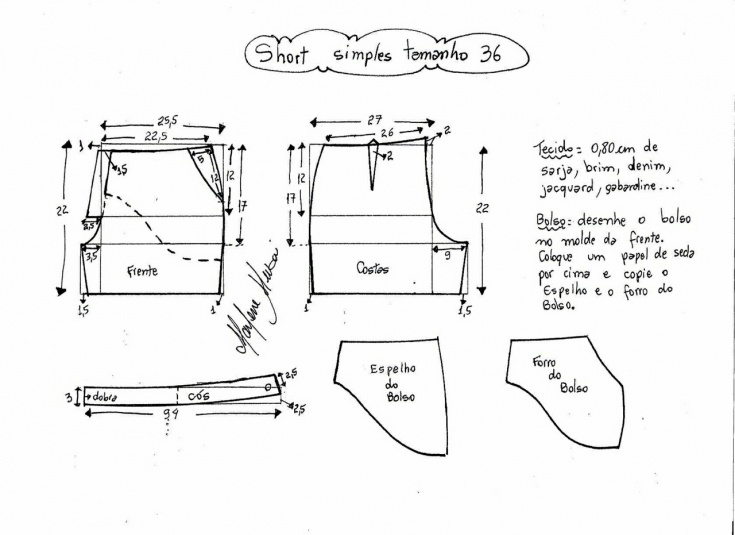 Short simples tamanho 36
25,5
22,5
1
1,5
5
12
12
17
22
2,5
3,5
Frente
1,5
1
27
26
2
2
12
17
22
Costas
9
1
1,5
Tecido = 0,80cm de
sarja, brim, denim,
jacquard, gabardine...
Bolso: desenhe o bolso
no molde da frente.
Coloque um papel de seda
por cima e copie o
Espelho e o forro do
Bolso.
3
dobra
cós
2,5
2,5
94
Espelho
do
Bolso
Forro
do
Bolso